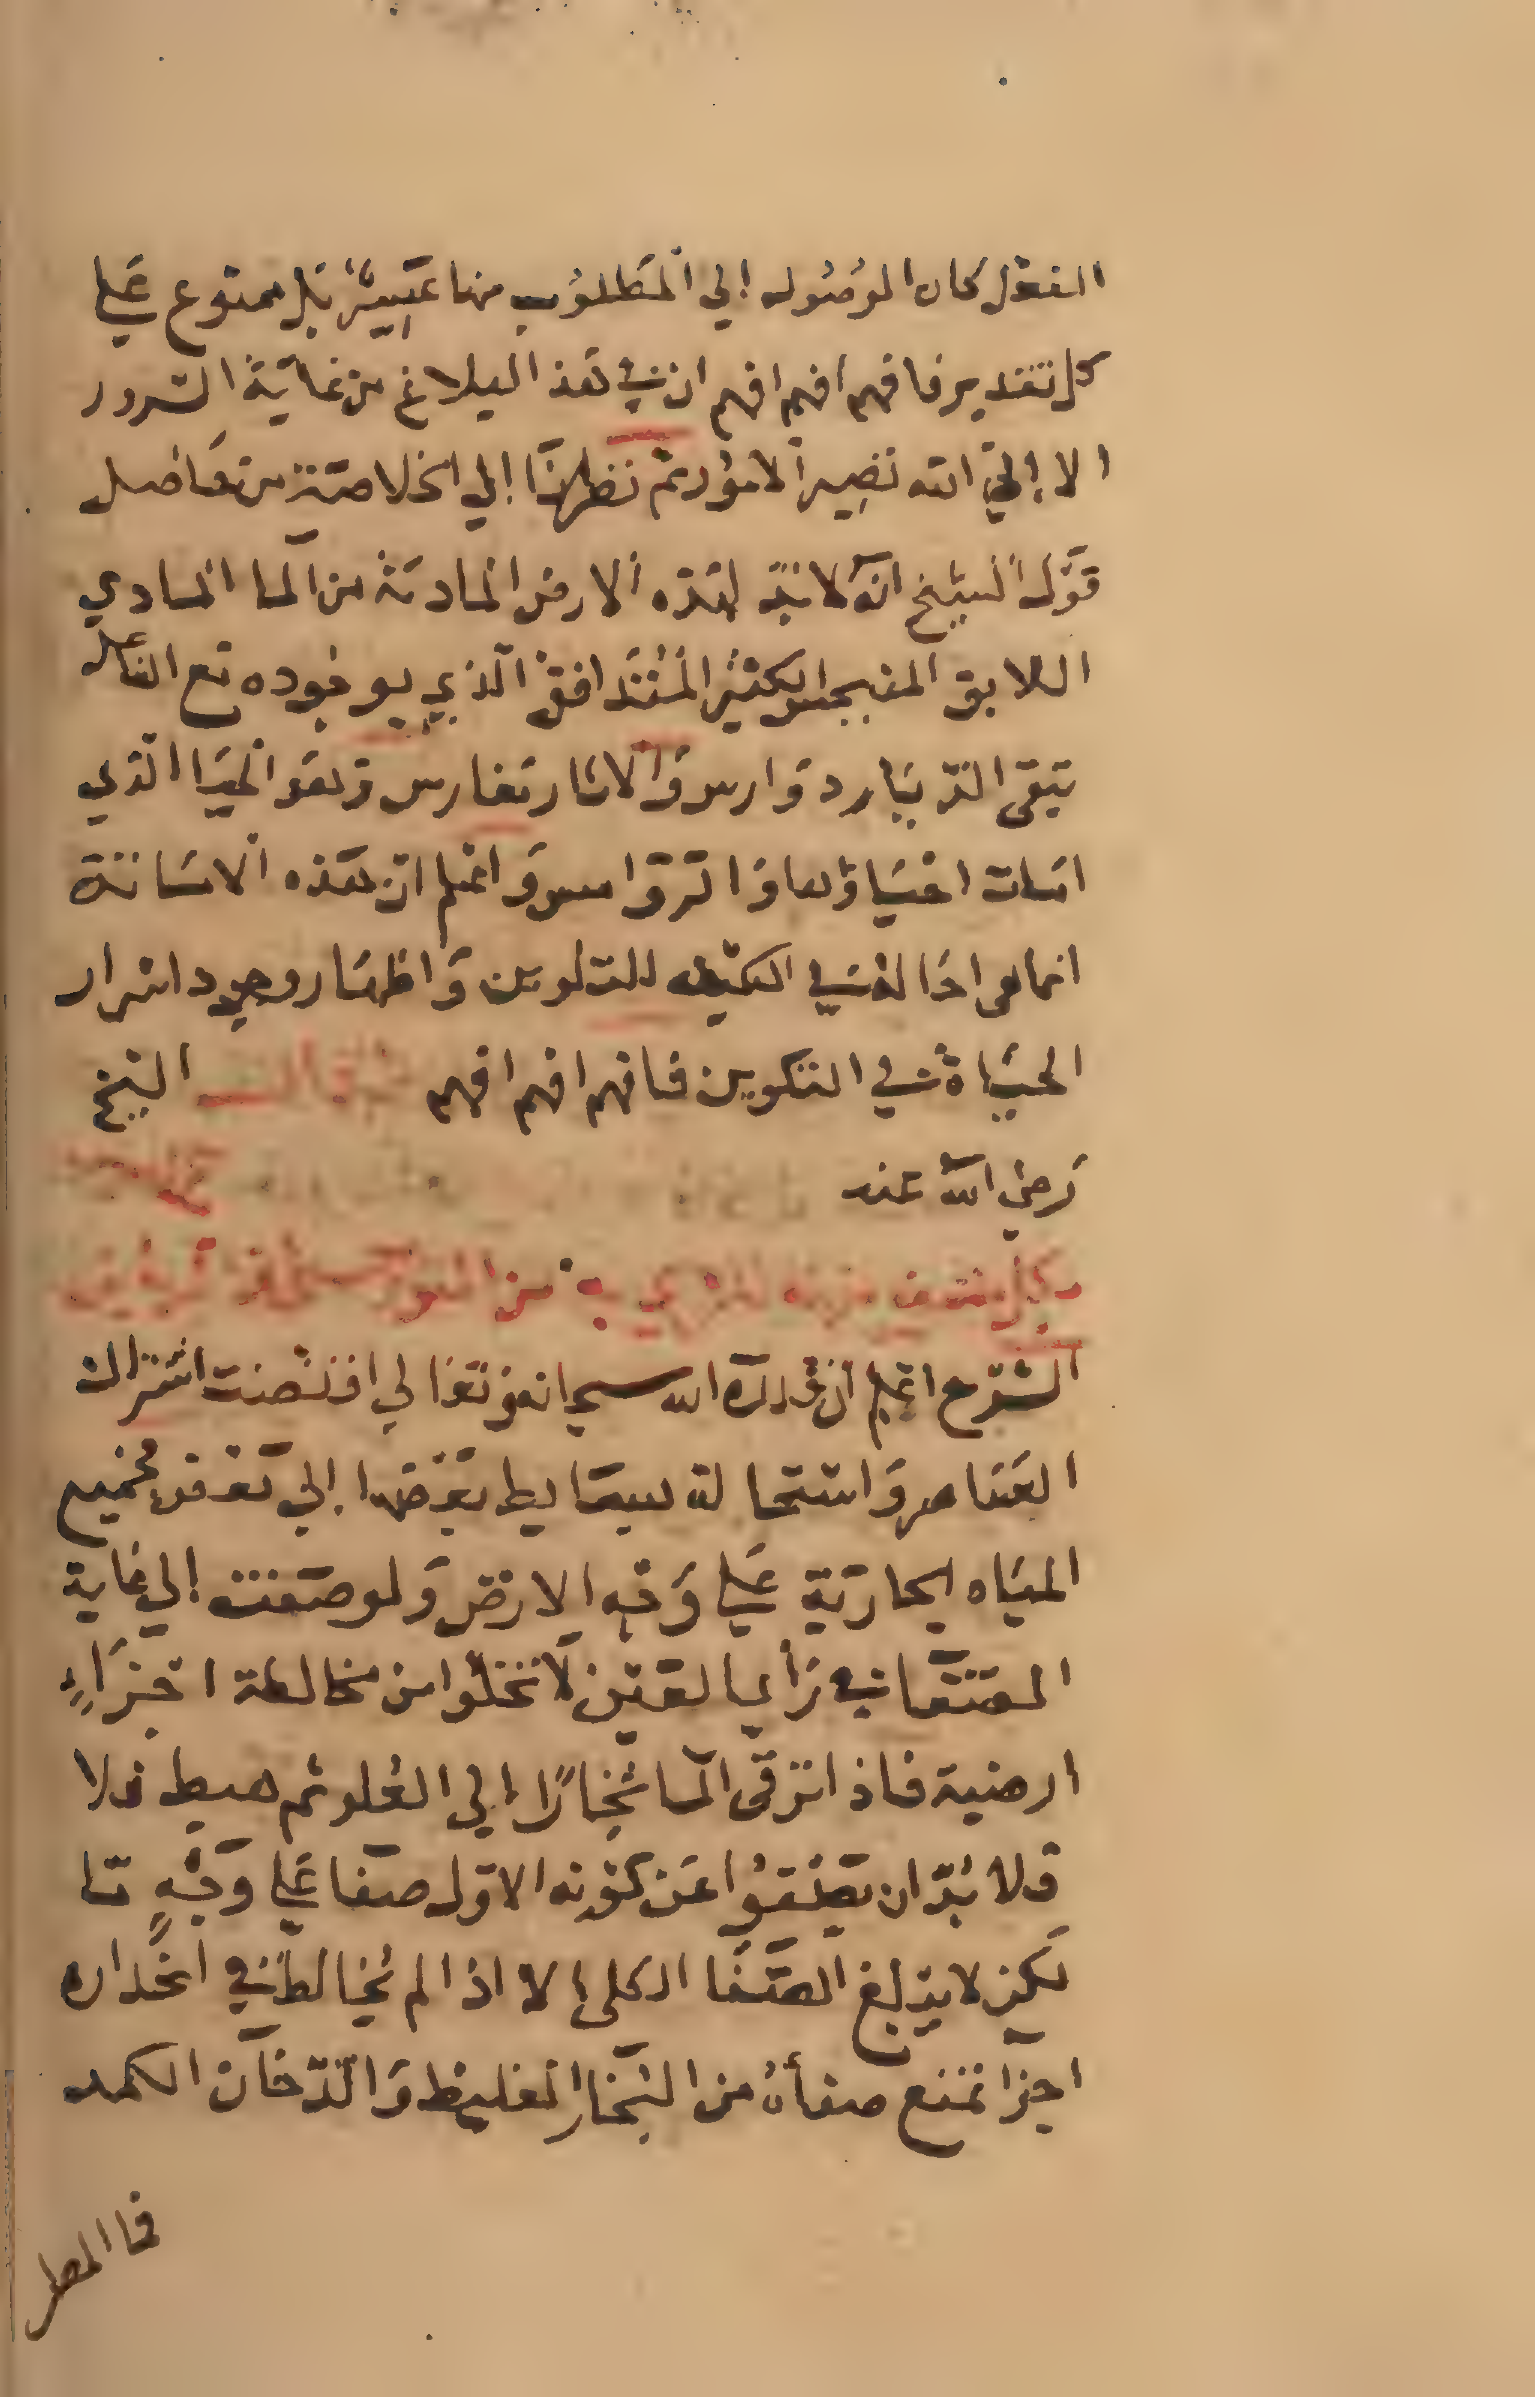 القول كان الوصول إلى المطلوب منها عسير بل ممنوع على
كل تقدير فافهم افهم افهم ان في هذا البلاغ من غاية السرور
الا إلى الله تصير الامور ثم نظرنا إلى الخلاصة من تفاصيل
قول الشيخ انه لابد لهذه الارض الحادثة من الما الهادي
اللابق المنبجس الكثير المتدافق الذي بوجوده مع الفاعل
تبقى الديار دوارس والاثار مغارس وهو الحيا الذي
امات احياوها وا واعلم ان هذه الاستاندة
انما هي احالة في الكيف للتلوين واظهار وجود اسرار
الحياة في التكوين فافهم افهم افهم قال الشيخ
رضي الله عنه
من النور
الشرح اعلم ان قدرة الله سبحانه وتعالى اقتضت اشتراك
العناصر واستحالة بسايط بعضها إلى بعض فجميع
المياه الجارية على وجه الارض ولو صفت إلى غاية
الصفا في رأي العين لا تخلوا من مخالطة اجزاء
ارضية فاذا ترقى الما بخارًا إلى العلو ثم هبط فلا
فلا بد ان يصفوا عن كونه الاول صفا على وجه ما
لكن لا يبلغ الصفا الكلي إلا اذا لم يخالط في انحداره
اجزا تمنع صفأه من البخار الغليظ والدخان الكمد
فما المطر